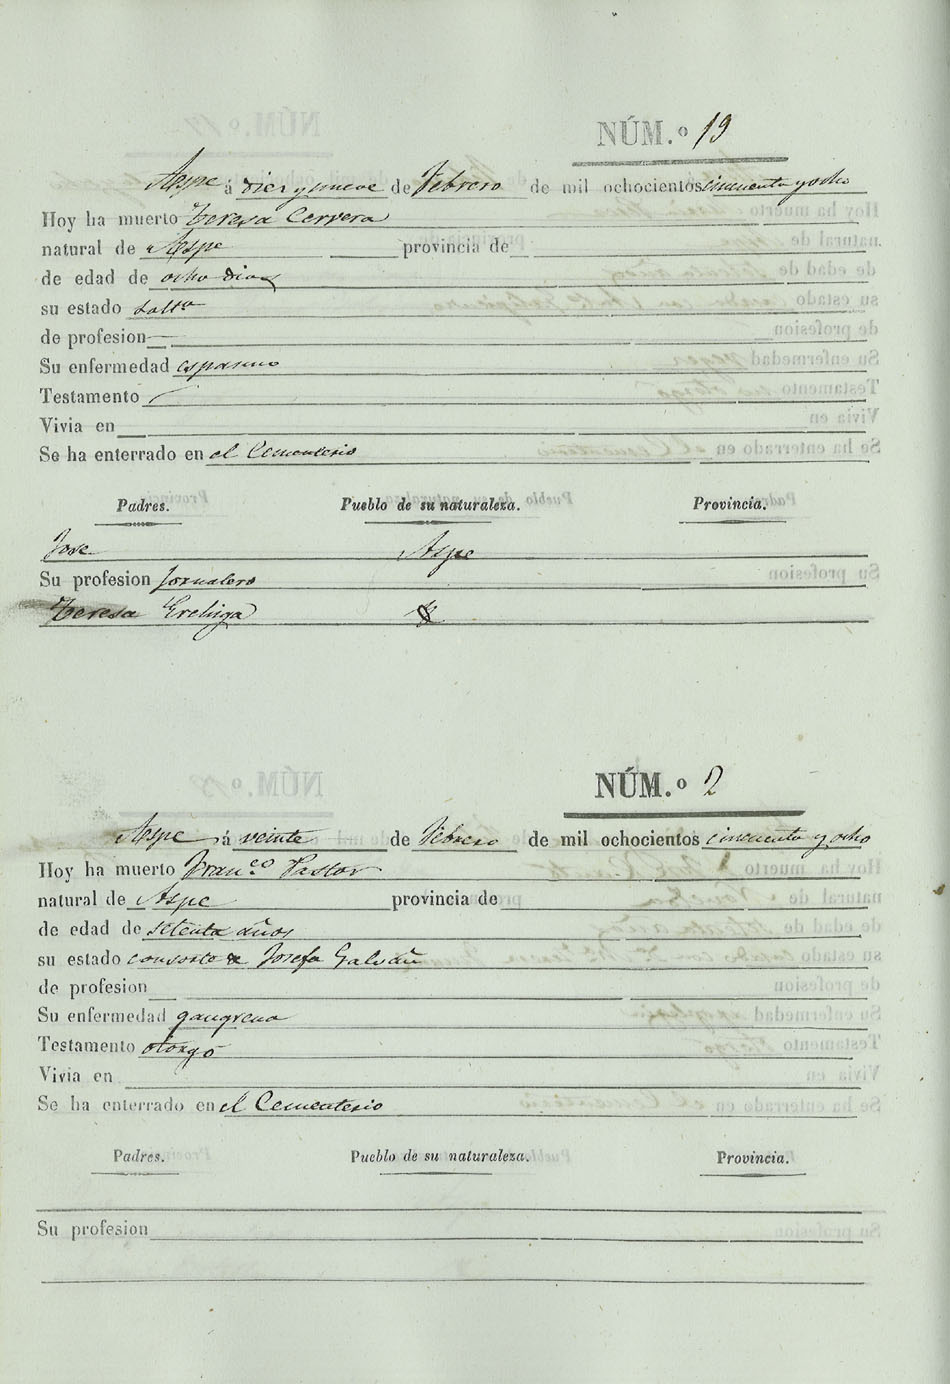 NÚM.º 19
Aspe á diez y nueve de Febrero de mil ochocientos cincuenta y ocho
Hoy ha muerto Teresa Cervera
natural de Aspe provincia de
de edad de ocho dias
su estado solt.ª
de profesion
Su enfermedad espasmo
Testamento
Vivia en
Se ha enterrado en el Cementerio
Padres. Pueblo de su naturaleza. Provincia.
Jose Aspe
Su profesion Jornalero
Teresa
NÚM.º 2
Aspe á veinte de Febrero de mil ochocientos cincuenta y ocho
Hoy ha muerto Fran.co Pastor
natural de Aspe provincia de
de edad de setenta años
su estado consorte de Josefa Galvañ
de profesion
Su enfermedad gangrena
Testamento otorgó
Vivia en
Se ha enterrado en el Cementerio
Padres. Pueblo de su naturaleza. Provincia.
Su profesion